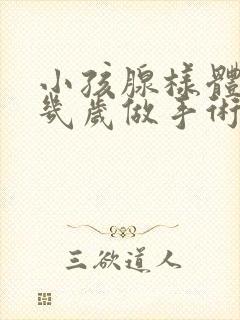 小孩腺樣體
幾歲做手術
三欲道人